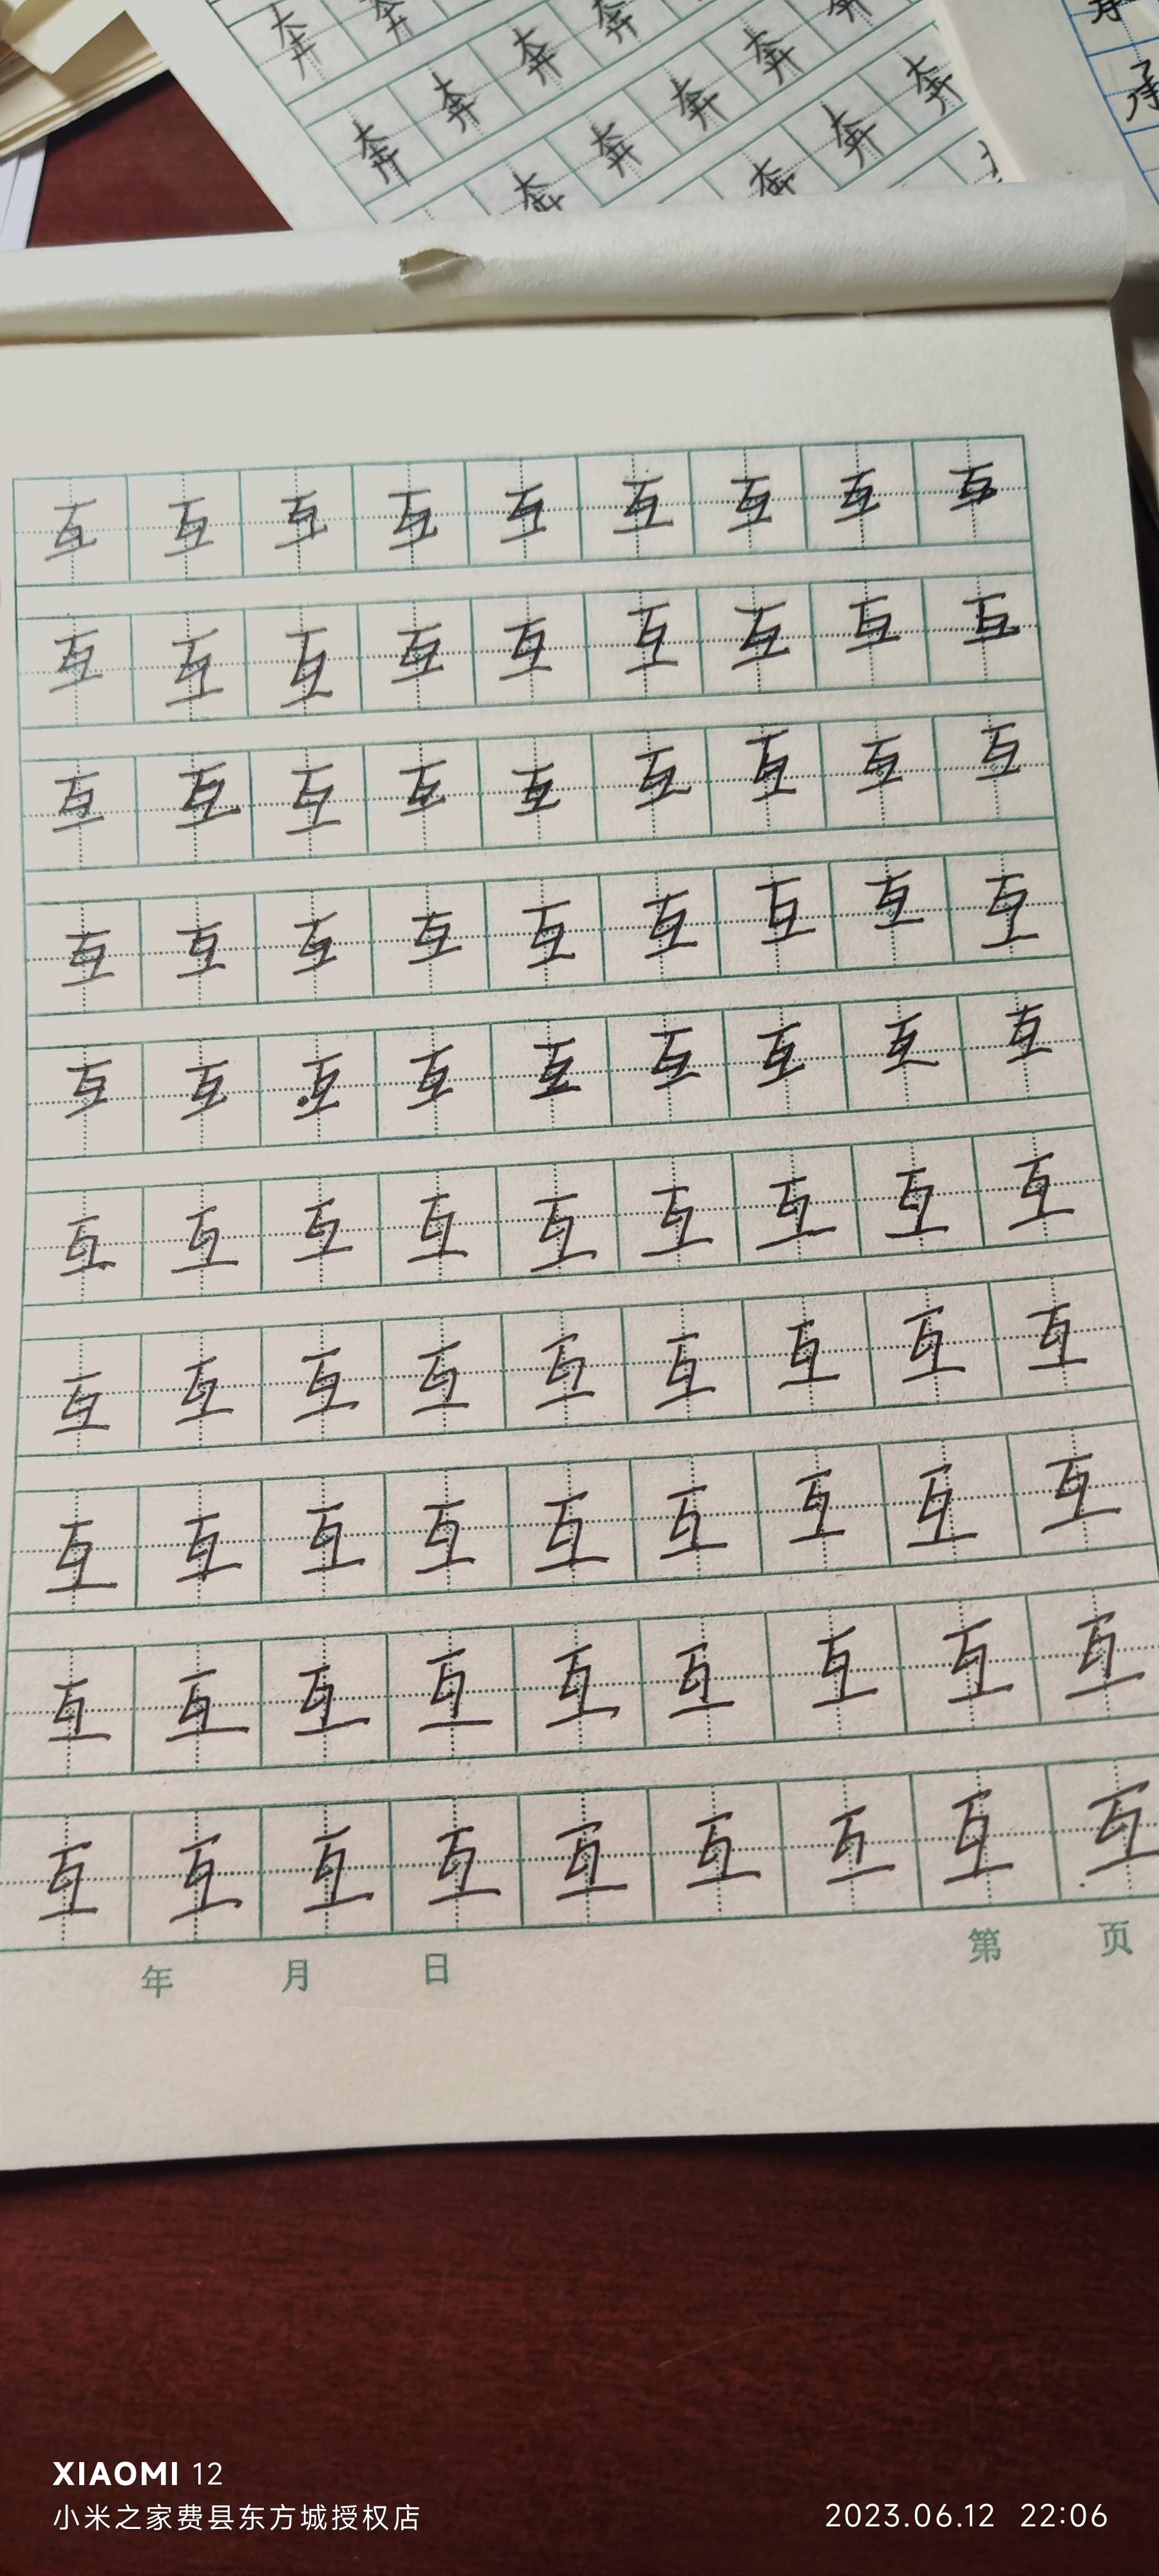 奔 奔 奔 奔
奔 奔 奔 奔 奔 奔
奔 奔 奔 奔 奔
承
互 互 互 互 互 互 互 互 互
互 互 互 互 互 互 互 互 互
互 互 互 互 互 互 互 互 互
互 互 互 互 互 互 互 互 互
互 互 互 互 互 互 互 互 互
互 互 互 互 互 互 互 互 互
互 互 互 互 互 互 互 互 互
互 互 互 互 互 互 互 互 互
互 互 互 互 互 互 互 互 互
互 互 互 互 互 互 互 互 互
年 月 日 第 页
XIAOMI 12
小米之家费县东方城授权店
2023.06.12 22:06